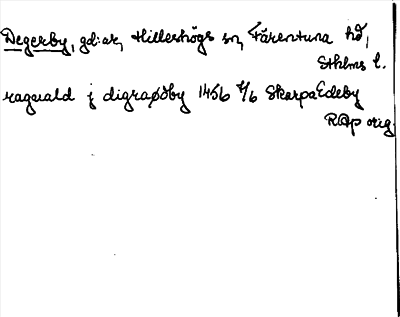 Degerby, gd:ar, Hilleshögs sn, Färentuna hd,
Sthlms l.
raguald j digraødby 1456 4/6 Skarpa Edeby
RAp orig.